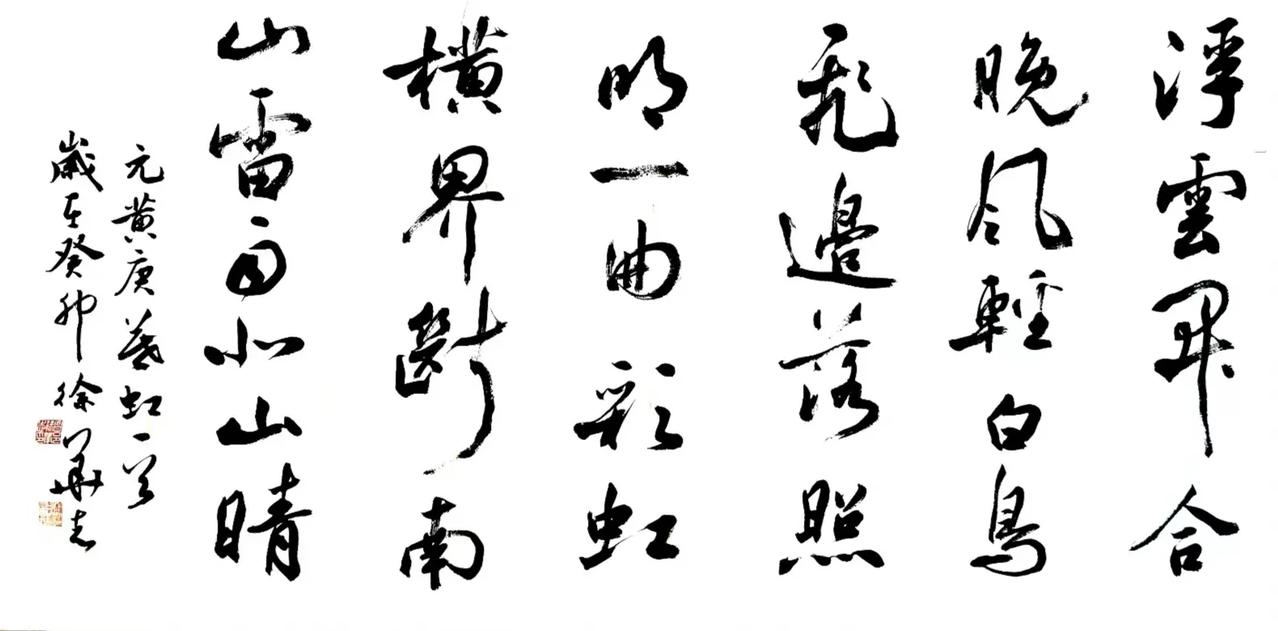 浮雲開合
晚風輕白鳥
飛邊落照
明一曲彩虹
橫界斷南
山雷雨北山晴
元黄庚暮虹一首
歲在癸卯徐華志